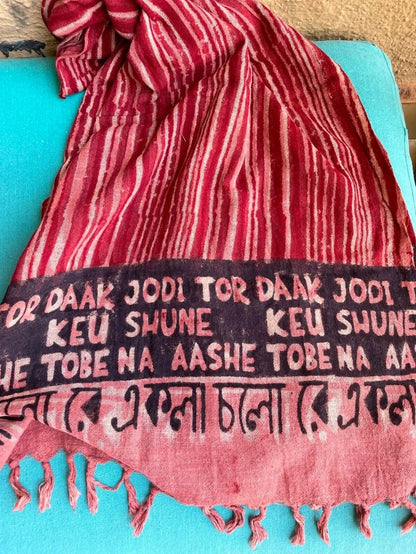 TOR DAAK JODI TOR DAAK JODI T
KEU SHUNE KEU SHUNE
HE TOBE NA AASHE TOBE NA AASHE
লা রে একলা চলো রে একল